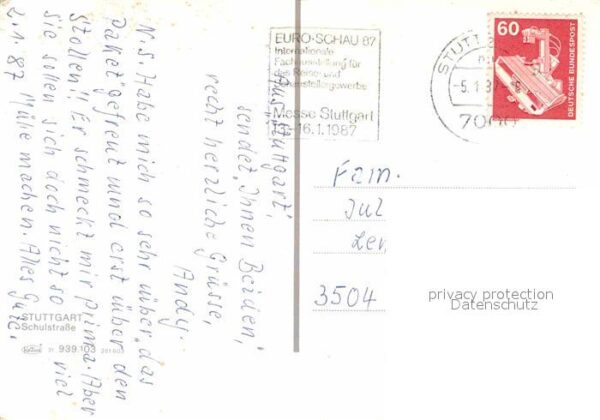 EURO-SCHAU 87
Internationale
Fachausstellung für
das Reise- und
Schaustellergewerbe
Messe Stuttgart
-16.1.1987
STUTT
-5.1.87
7000
60
DEUTSCHE BUNDESPOST
Aus „Stuttgart“,
sendet „Ihnen Beiden“,
recht herzliche Grüsse,
Andy.
N.S. Habe mich so sehr über „das
Paket gefreut und erst über den
Stollen“!! Er schmeckt mir prima. Aber
Sie sollen sich doch nicht so viel
2.1.87 Mühe machen. Alles Gute.
Fam.
Jul
Len
3504
privacy protection
Datenschutz
STUTTGART
Schulstraße
Krüger 939.103